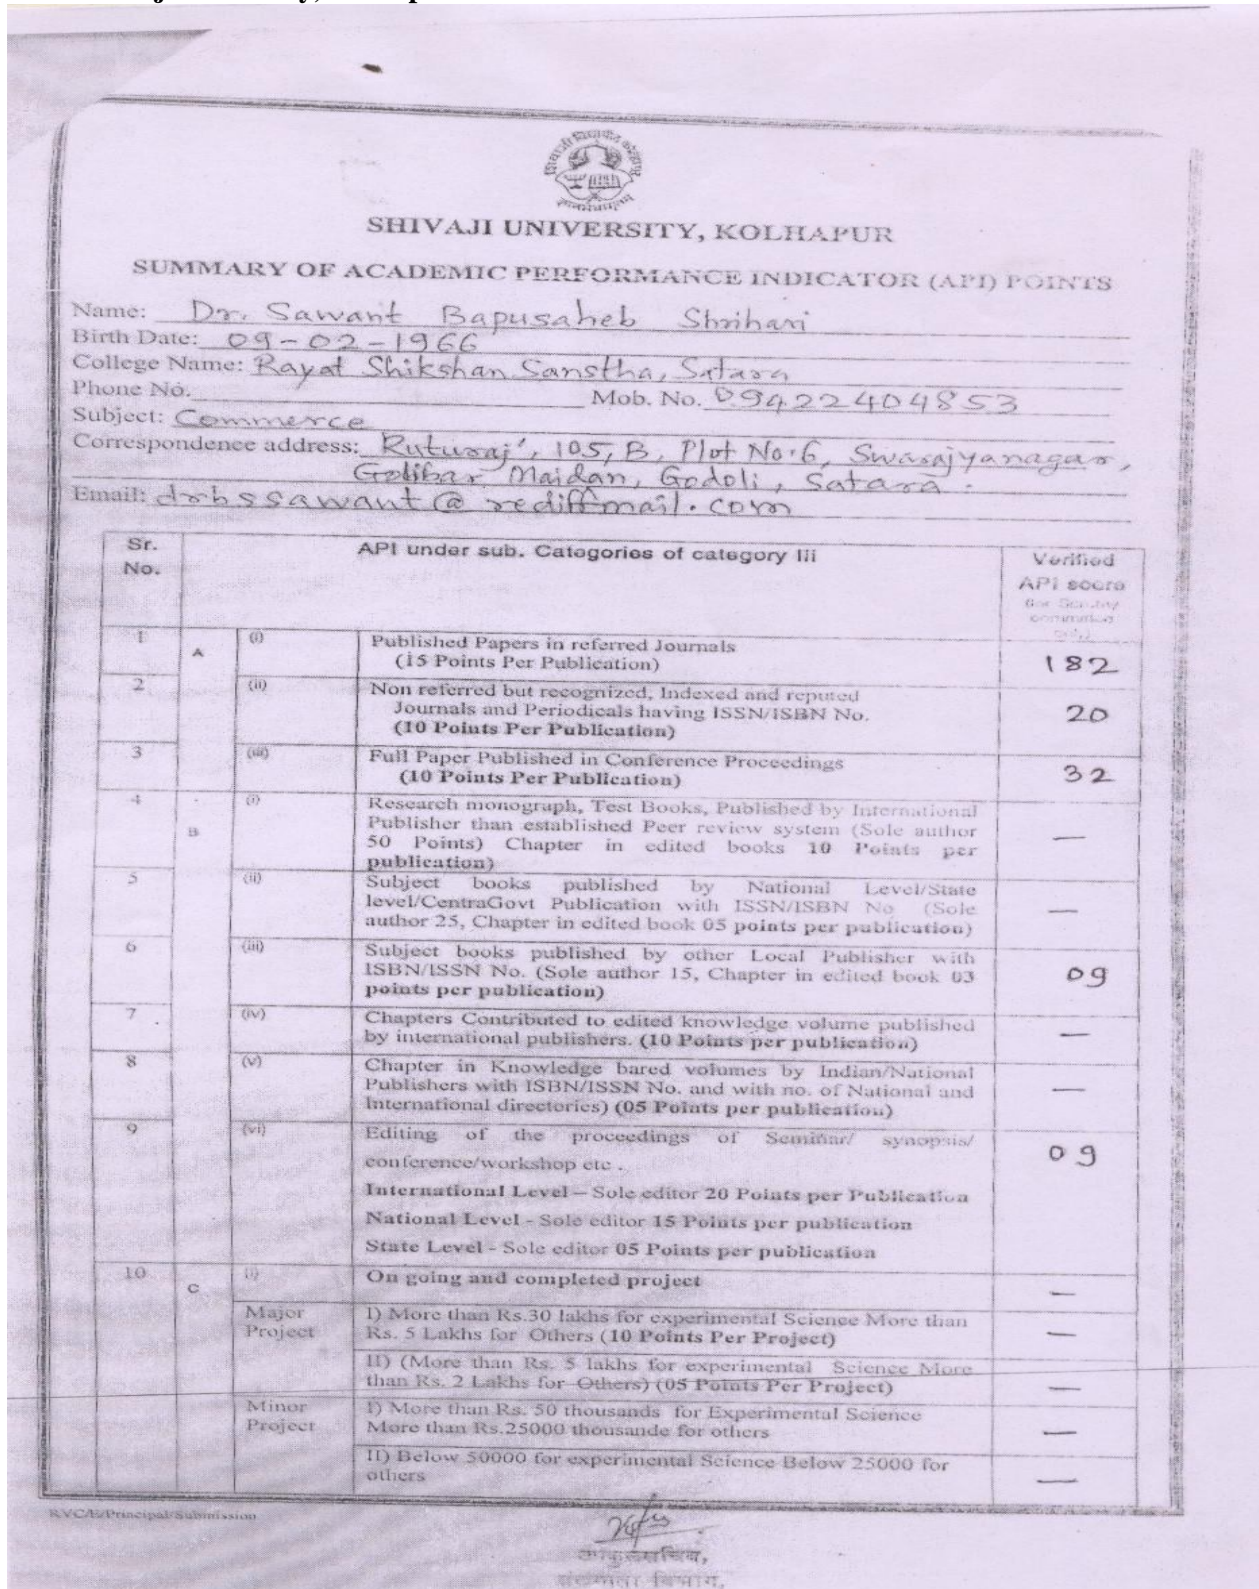 SHIVAJI UNIVERSITY, KOLHAPUR
SUMMARY OF ACADEMIC PERFORMANCE INDICATOR (API) POINTS
Name: Dr. Sawant Bapusaheb Shrihari
Birth Date: 09-02-1966
College Name: Rayat Shikshan Sanstha, Satara
Phone No. Mob. No. 09422404853
Subject: Commerce
Correspondence address: Ruturaj', 105, B, Plot No. 6, Swarajyanagar,
Golibar Maidan, Godoli, Satara.
Email: drbssawant@rediffmail.com
Sr. API under sub. Categories of category III Verified
No. API score
1 A (i) Published Papers in referred Journals
(15 Points Per Publication) 182
2 (ii) Non referred but recognized, Indexed and reputed
Journals and Periodicals having ISSN/ISBN No. 20
(10 Points Per Publication)
3 (iii) Full Paper Published in Conference Proceedings
(10 Points Per Publication) 32
4 B (i) Research monograph, Test Books, Published by International
Publisher than established Peer review system (Sole author
50 Points) Chapter in edited books 10 Points per —
publication)
5 (ii) Subject books published by National Level/State
level/CentraGovt Publication with ISSN/ISBN No (Sole —
author 25, Chapter in edited book 05 points per publication)
6 (iii) Subject books published by other Local Publisher with
ISBN/ISSN No. (Sole author 15, Chapter in edited book 03 09
points per publication)
7 (iv) Chapters Contributed to edited knowledge volume published
by international publishers. (10 Points per publication) —
8 (v) Chapter in Knowledge bared volumes by Indian/National
Publishers with ISBN/ISSN No. and with no. of National and —
International directories) (05 Points per publication)
9 (vi) Editing of the proceedings of Seminar/ synopsis/
conference/workshop etc . 09
International Level – Sole editor 20 Points per Publication
National Level - Sole editor 15 Points per publication
State Level - Sole editor 05 Points per publication
10 C (i) On going and completed project —
Major I) More than Rs.30 lakhs for experimental Science More than
Project Rs. 5 Lakhs for Others (10 Points Per Project) —
II) (More than Rs. 5 lakhs for experimental Science More
than Rs. 2 Lakhs for Others) (05 Points Per Project) —
Minor I) More than Rs. 50 thousands for Experimental Science
Project More than Rs.25000 thousande for others —
II) Below 50000 for experimental Science Below 25000 for
others —